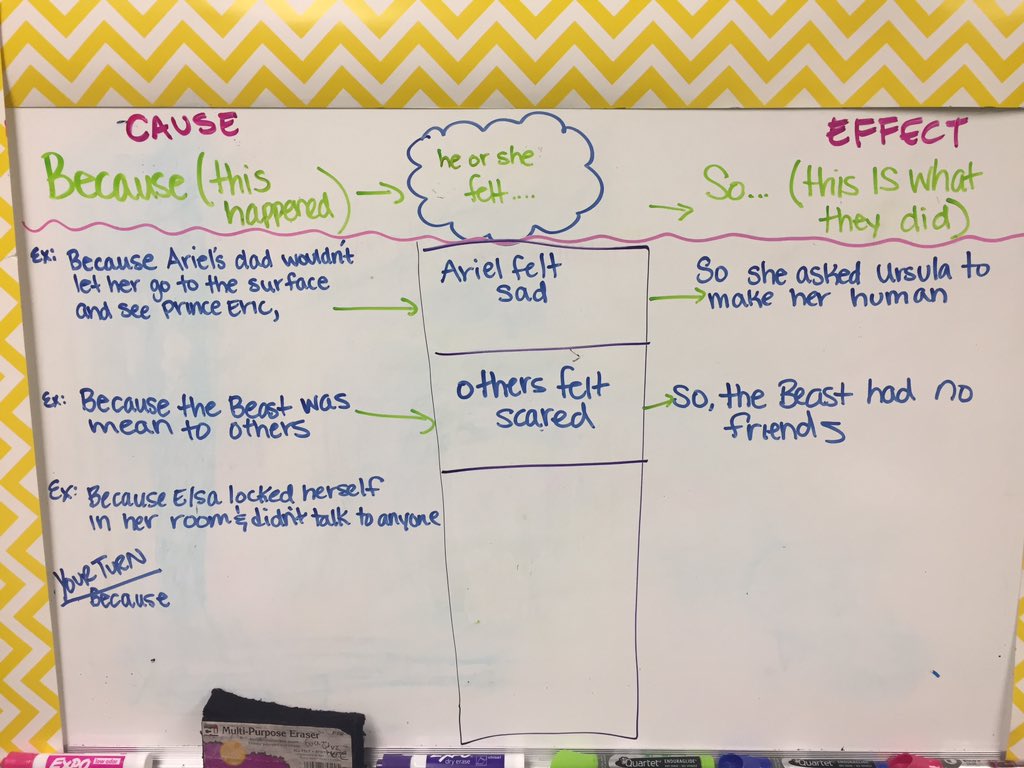 CAUSE
EFFECT
Because (this happened)
he or she
felt....
So... (this IS what
they did)
Ex: Because Ariel's dad wouldn't
let her go to the surface
and see Prince Eric,
Ariel felt
sad
So she asked Ursula to
make her human
Ex: Because the Beast was
mean to others
others felt
scared
So, the Beast had no
friends
Ex: Because Elsa locked herself
in her room & didn't talk to anyone
YOUR TURN
Because
Multi-Purpose Eraser
EXPO low odor
dry erase
Quartet ENDURAGLIDE
Quartet ENDURAGLIDE